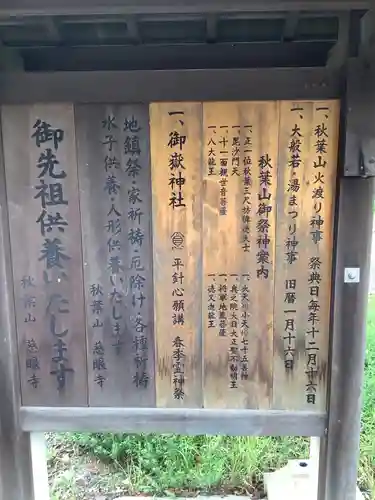 一、秋葉山火渡り神事 祭典日毎年十二月十六日
一、大般若・湯まつり神事 旧暦一月十六日
秋葉山御祭神案内
一、正一位秋葉三尺坊偉徳大士
一、毘沙門天
一、十一面観世音菩薩
一、八大龍王
一、火天川小天川七十五善神
一、奥之院火日大正聖不動明王
一、将軍地蔵菩薩
一、徳又迦龍王
一、御嶽神社
平針心願講 春季霊神祭
地鎮祭・家祈祷・厄除け・各種祈祷
水子供養・人形供養いたします
秋葉山 慈眼寺
御先祖供養いたします
秋葉山 慈眼寺